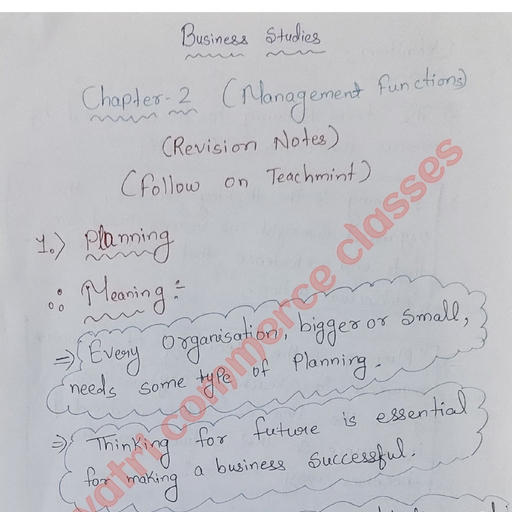 Business Studies
Chapter-2 (Management functions)
(Revision Notes)
(follow on Teachmint)
1.) Planning
Meaning:-
⇒ Every Organisation, bigger or small,
needs some type of Planning.
⇒ Thinking for future is essential
for making a business successful.
vatri commerce classes